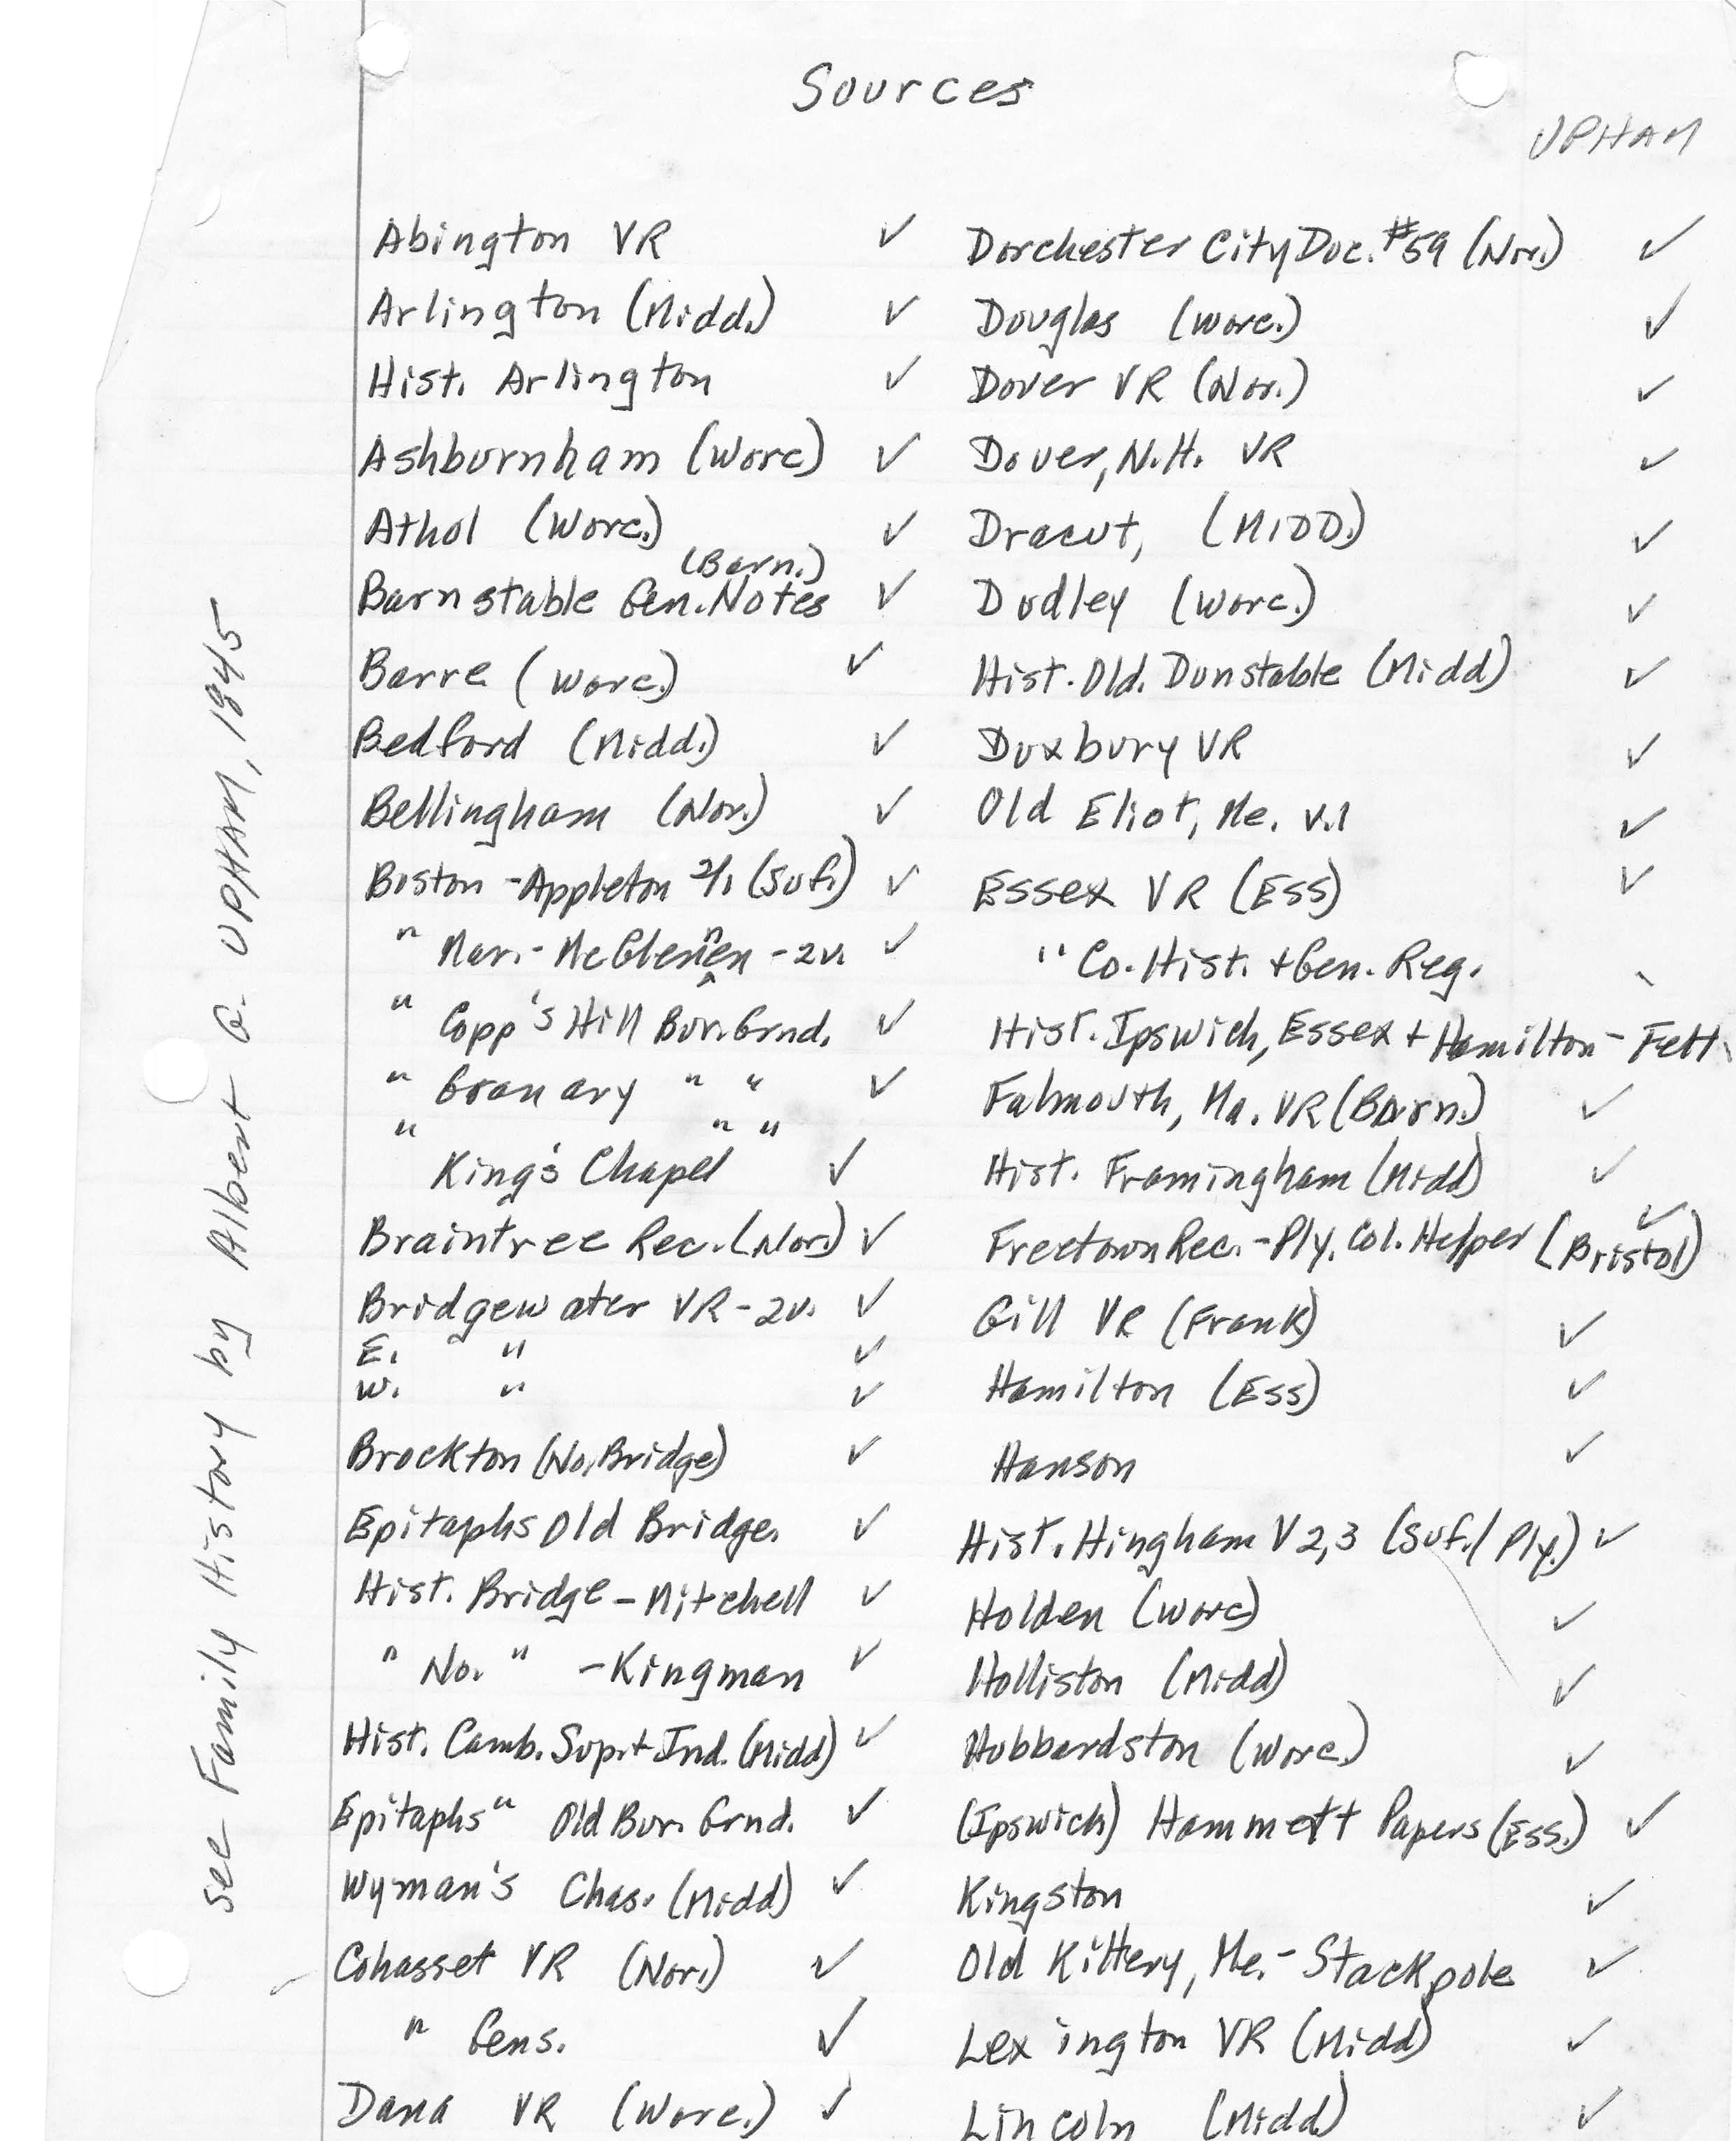 Sources
UPHAM
see Family History by Albert G. UPHAM, 1845
Abington VR ✓
Arlington (Midd.) ✓
Hist. Arlington ✓
Ashburnham (Worc) ✓
Athol (Worc.) ✓
(Barn.)
Barnstable Gen. Notes ✓
Barre (Worc.) ✓
Bedford (Midd.) ✓
Bellingham (Nor.) ✓
Boston - Appleton 2/1 (Suf.) ✓
" Mar. - McGlenen - 2v. ✓
" Copp's Hill Bur. Grnd. ✓
" Granary " " ✓
" " "
King's Chapel ✓
Braintree Rec. (Nor.) ✓
Bridgewater VR - 2v. ✓
E. " ✓
W. " ✓
Brockton (No. Bridge) ✓
Epitaphs Old Bridge. ✓
Hist. Bridge - Mitchell ✓
" No. " - Kingman ✓
Hist. Camb. Sup. + Ind. (Midd) ✓
Epitaphs " Old Bur. Grnd. ✓
Wyman's Chas. (Midd) ✓
Cohasset VR (Nor.) ✓
" Gens. ✓
Dana VR (Worc.) ✓
Dorchester City Doc. #59 (Nor.) ✓
Douglas (Worc.) ✓
Dover VR (Nor.) ✓
Dover, N.H. VR ✓
Dracut, (MIDD.) ✓
Dudley (Worc.) ✓
Hist. Old. Dunstable (Midd) ✓
Duxbury VR ✓
Old Eliot, Me. v.1 ✓
Essex VR (Ess) ✓
" Co. Hist. + Gen. Reg.
Hist. Ipswich, Essex + Hamilton - Felt
Falmouth, Ma. VR (Barn.) ✓
Hist. Framingham (Midd) ✓
Freetown Rec. - Ply. Col. Helper (Bristol) ✓
Gill VR (Frank) ✓
Hamilton (Ess) ✓
Hanson ✓
Hist. Hingham V 2,3 (Suf./Ply.) ✓
Holden (Worc) ✓
Holliston (Midd) ✓
Hubbardston (Worc.) ✓
(Ipswich) Hammett Papers (Ess.) ✓
Kingston ✓
Old Kittery, Me. - Stackpole ✓
Lexington VR (Midd) ✓
Lincoln (Midd) ✓